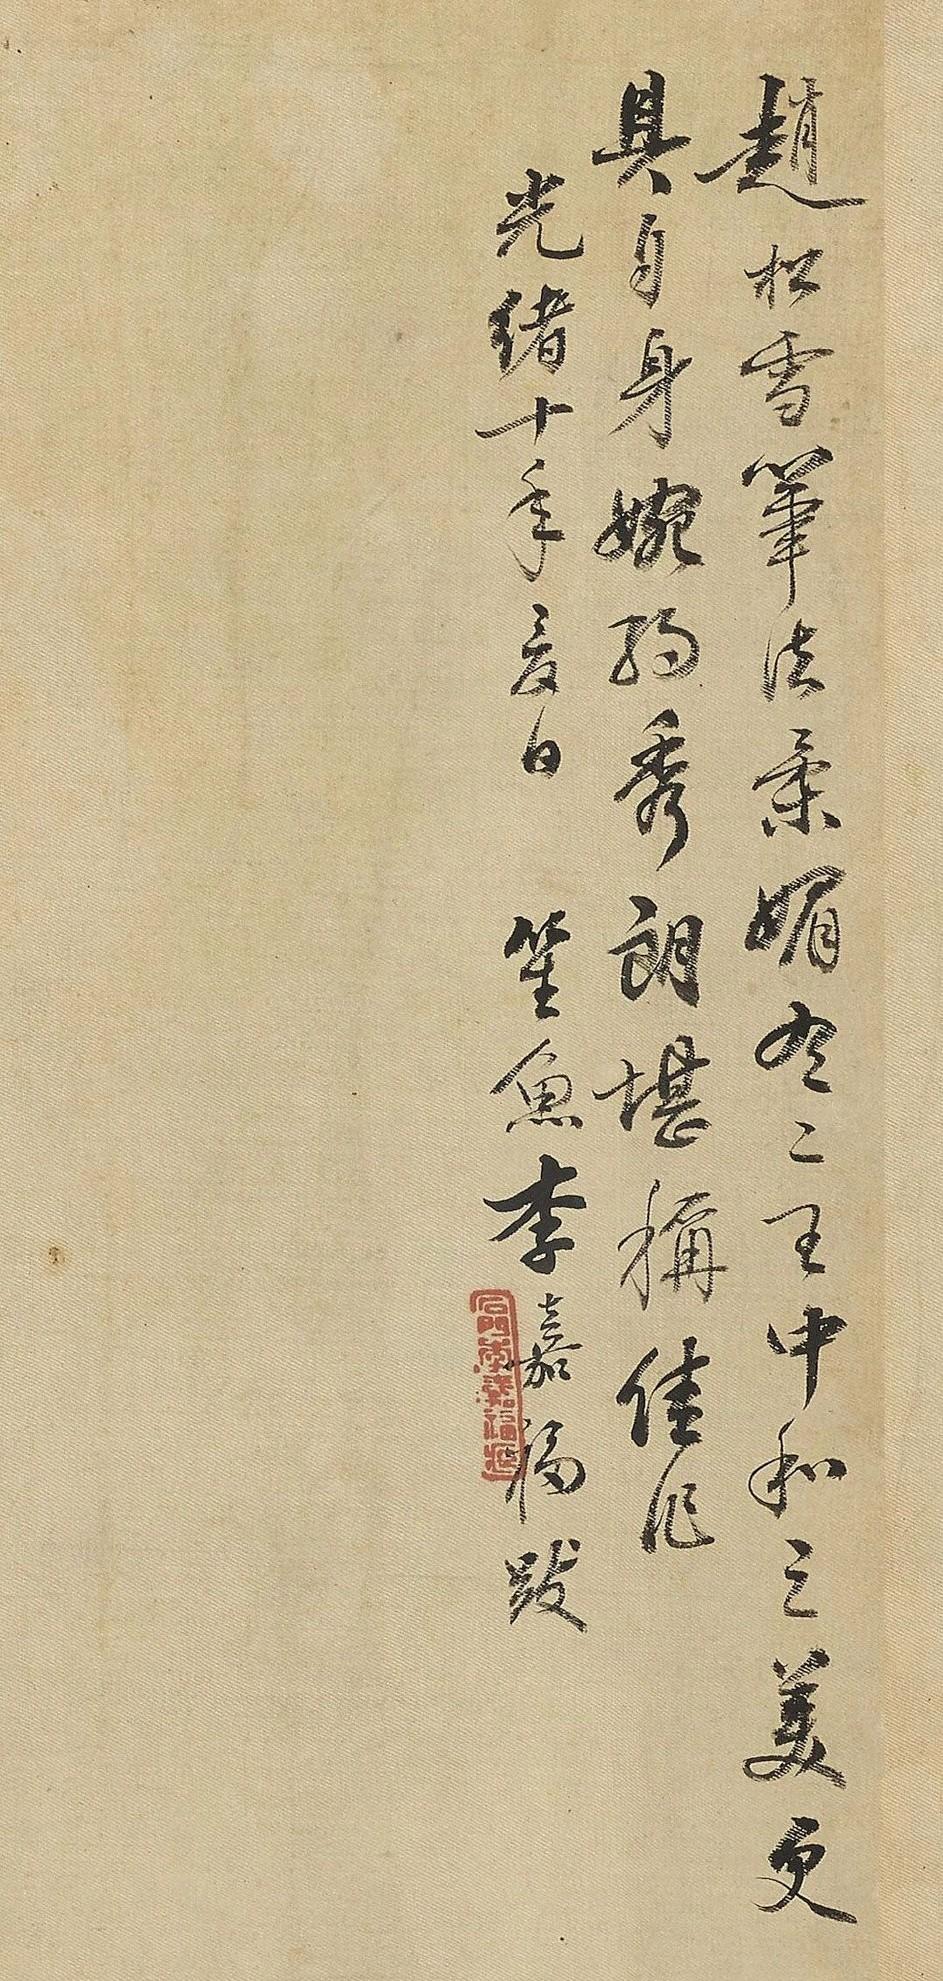 趙松雪筆法柔媚有二王中和之美更
具自身婉約秀朗堪稱佳作
光緒十年夏日 笙魚李嘉福跋